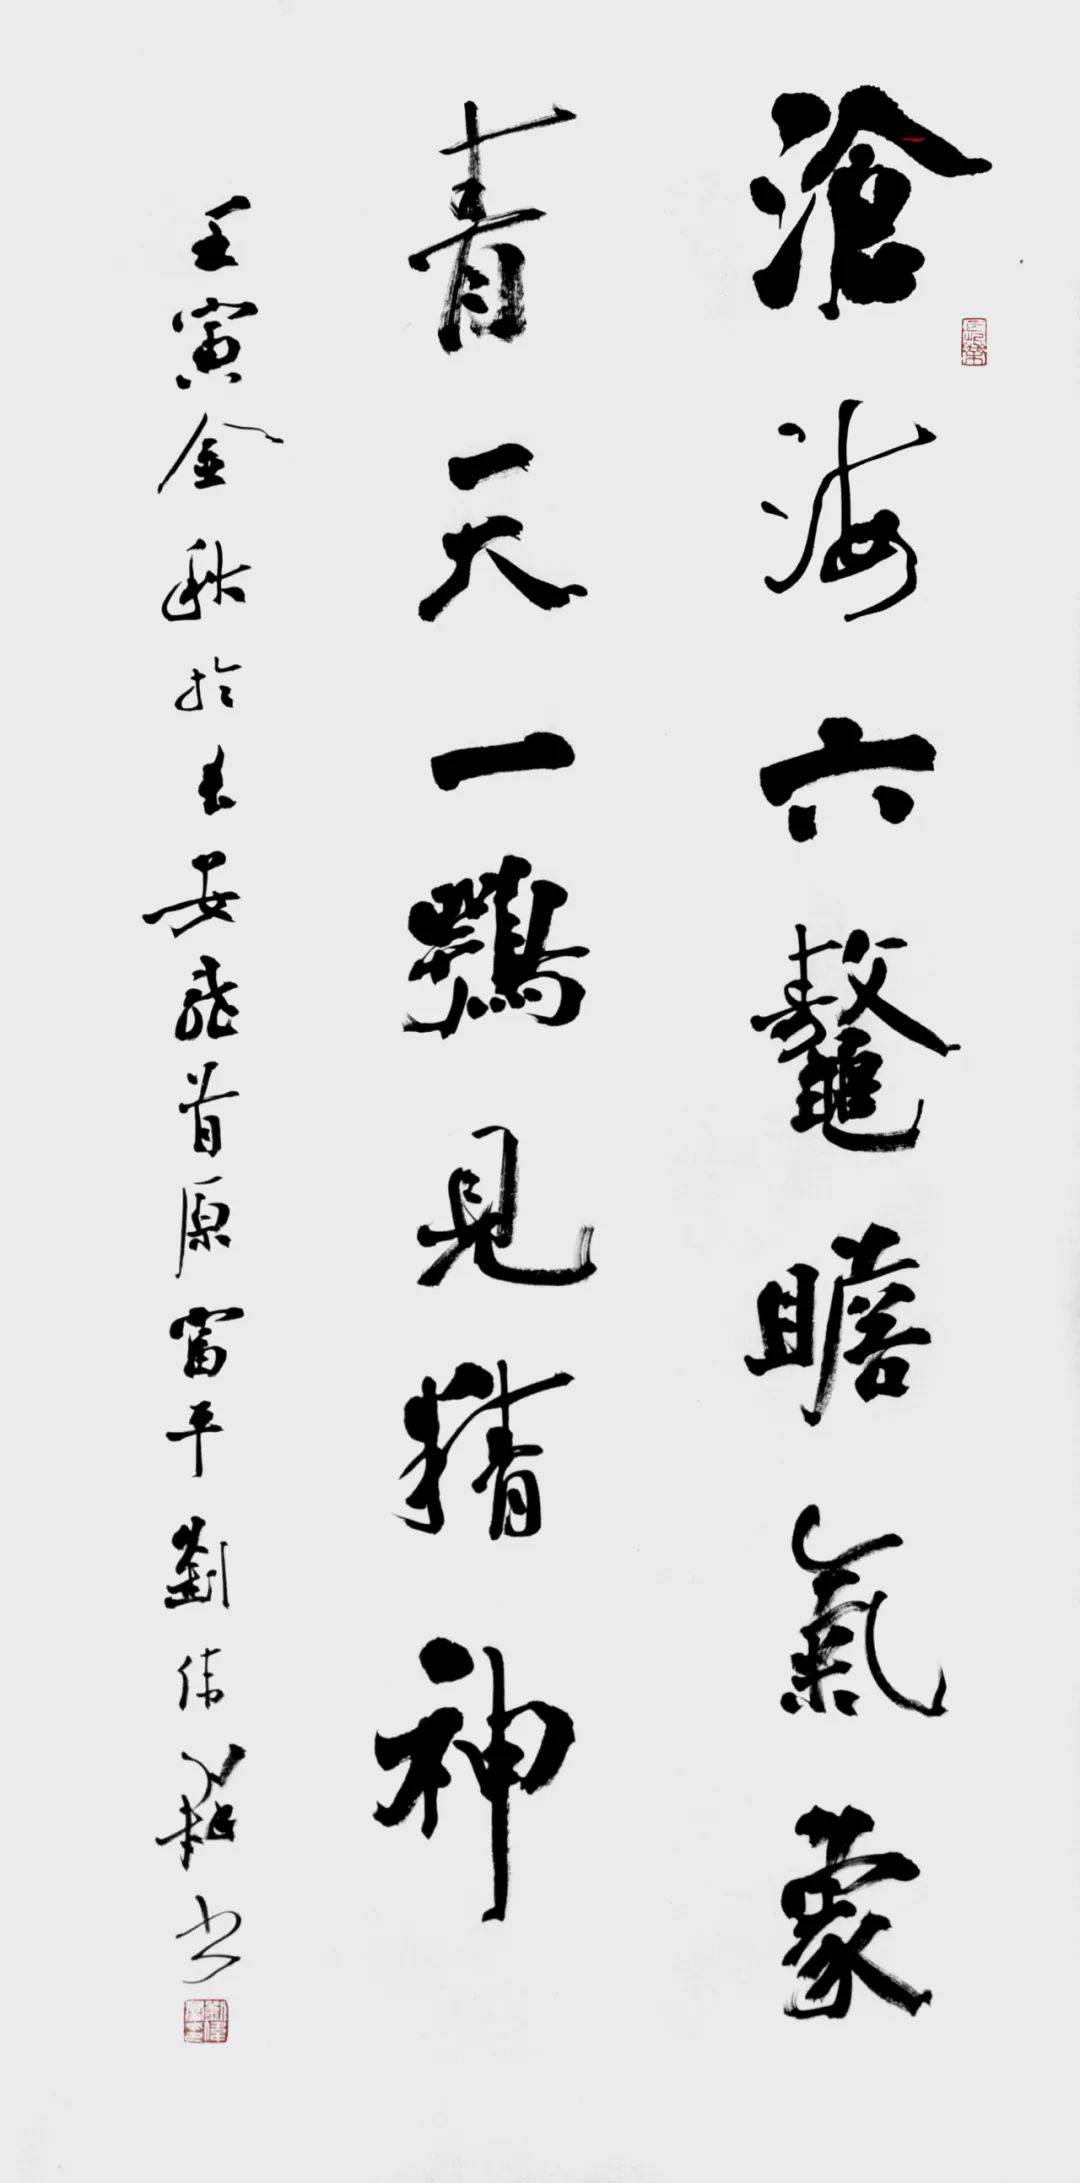 滄海六鼇瞻氣象
青天一鶚見精神
壬寅金秋於長安龍首原富平劉伟 書